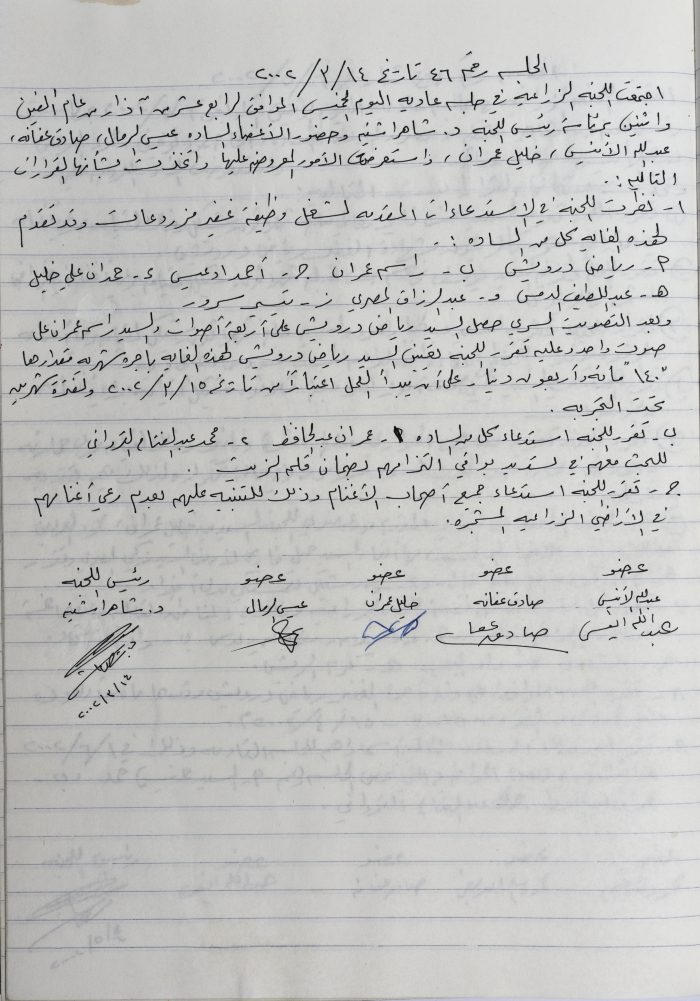 الجلسه رقم ٤٦ تاريخ ١٤/٣/٢٠٠٢
اجتمعت اللجنه الزراعيه في جلسه عاديه اليوم الخميس الموافق الرابع عشر من آذار من عام الفين
واثنين برئاسة رئيس اللجنه د. شاهر اشتيه وحضور الأعضاء الساده عيسى الرمال، صادق عفانه،
عبدالله الأنيس، خليل عمران، واستعرضت الأمور المعروضه عليها واتخذت بشأنها القرارات
التاليه:
١- نظرت اللجنه في الاستدعاءات المقدمه لشغل وظيفة غفير مزروعات وقد تقدم
لهذه الغايه كل من الساده:
٢- رياض درويش ب- راسم عمران ج- أحمد عيسى ء- حمدان علي خليل
هـ- عبد اللطيف و- عبد الرزاق المصري ز- تيسير سرور
وبعد التصويت السري حصل السيد رياض درويش على أربعة أصوات والسيد راسم عمران على
صوت واحد وعليه تقرر اللجنه تعيين السيد رياض درويش لهذه الغايه بأجره شهريه مقدارها
"١٤٠" مائه وأربعون دينار على أن يبدأ العمل اعتباراً من تاريخ ١٥/٣/٢٠٠٢ ولفترة شهرين
تحت التجربه.
ب- تقرر اللجنه استدعاء كل من الساده ١- عمران عبد الحافظ ٢- محمد عبد الفتاح
للبحث معهم في تسديد بواقي التزامهم بضمان الزيت.
ج- تقرر اللجنه استدعاء جميع أصحاب الأغنام وذلك للتنبيه عليهم بعدم رعي أغنامهم
في الأراضي الزراعيه المشجره.
عضو عضو عضو عضو رئيس اللجنه
عبدالله الأنيس صادق عفانه خليل عمران عيسى الرمال د. شاهر اشتيه
عبدالله انيس صادق عفانه
١٤/٣/٢٠٠٢